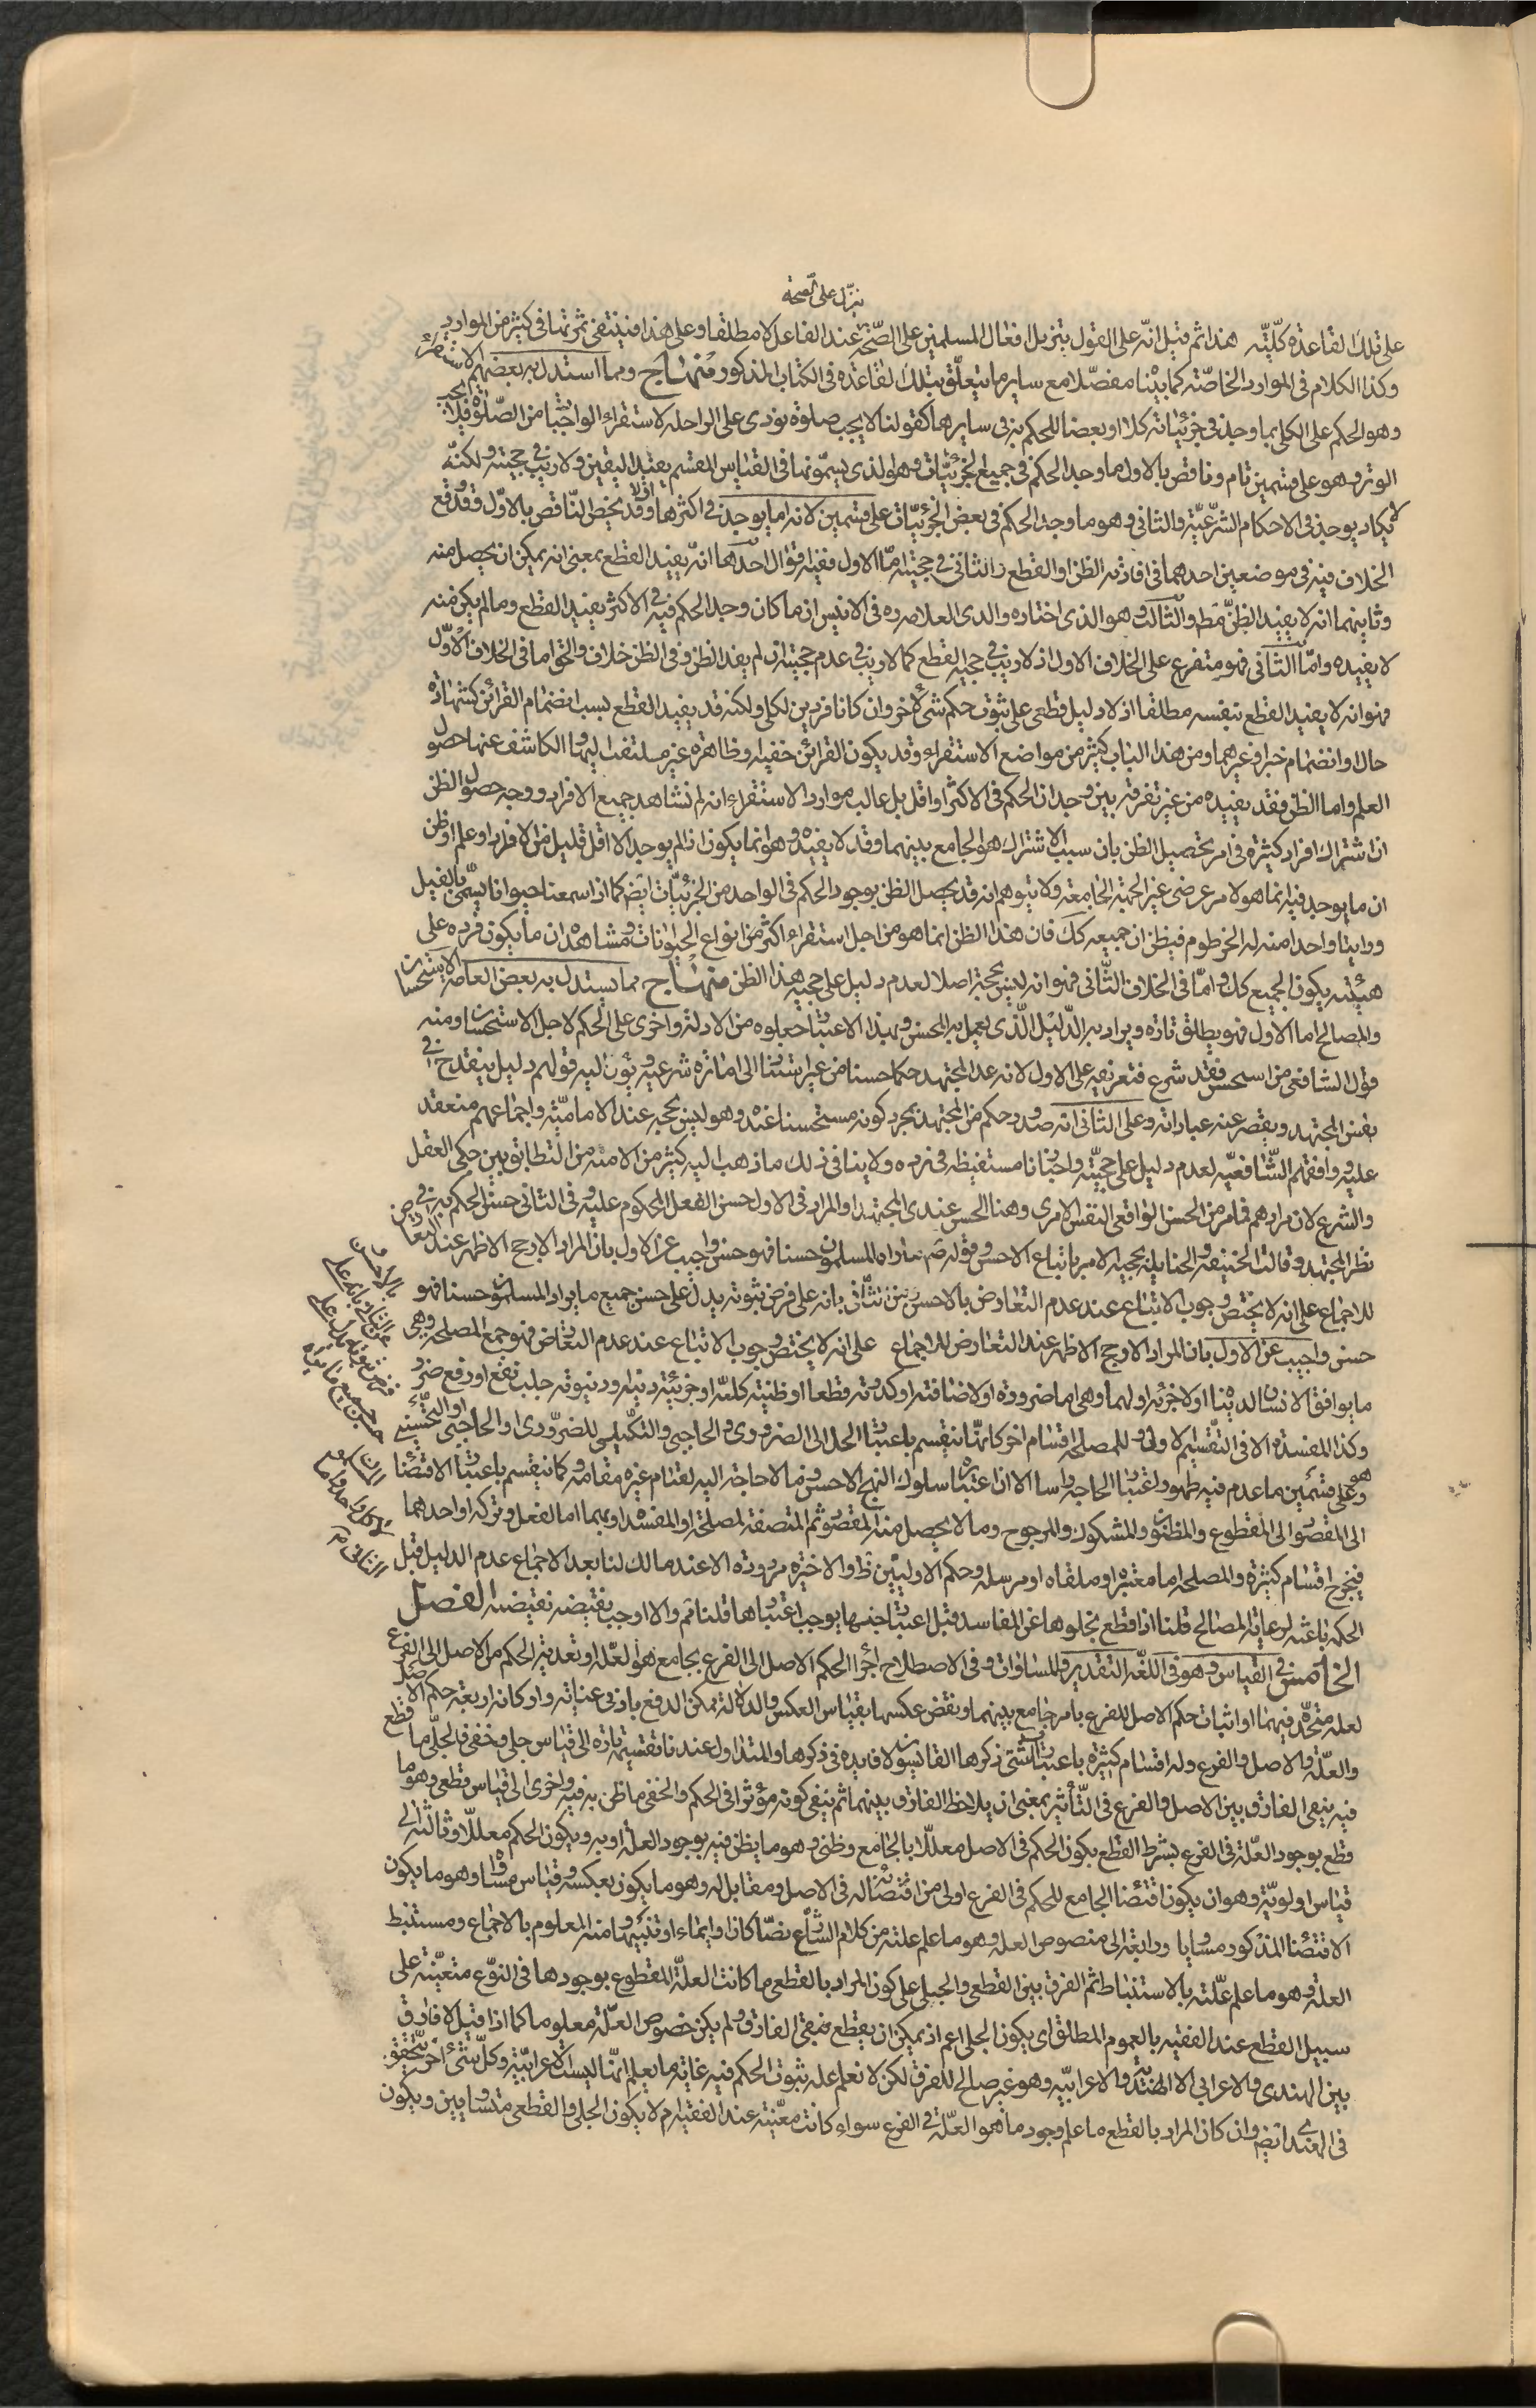 ننزل على الصحة
على تلك القاعدة كليّة هذا ثم قيل انّه على القول بتنزيل افعال المسلمين على الصّحّة عند الفاعل لا مطلقا وعلى هذا فينتفى ثمرتها فى كثير من الموارد
وكذا الكلام فى الموارد الخاصّة كما بيّنا مفصّلا مع ساير ما يتعلّق بتلك القاعدة فى الكتاب المذكور منهاج ومما استدل به بعضهم الاستقراء
وهو الحكم على الكلى بما وجد فى جزئيّاته كلا او بعضا للحكم به فى سايرها كقولنا لا يجب صلوة تؤدى على الراحلة لاستقراء الواجبات من الصّلوة فلا يجب
الوتر وهو على قسمين تام وناقص بالاول ما وجد الحكم فى جميع الجزئيّات وهو الذى يسمّونها فى القياس المقسم يفيد اليقين ولا ريب فى حجيته ولكنّه
لا يكاد يوجد فى الاحكام الشرّعيّة والثانى وهو ما وجد الحكم فى بعض الجزئيّات على قسمين لانه اما يوجد فى اكثرها او لا وقد يخصّ النّاقص بالاوّل وقد وقع
الخلاف فيه فى موضعين احدهما فى افادته الظن او القطع والثانى فى حجيته امّا الاول ففيه اقوال احدها انّه يفيد القطع بمعنى انه يمكن ان يحصل منه
وثانيهما انه لا يفيد الظنّ فقط والثالث وهو الذى اختاره والدى العلامه ره فى الانيس ان ما كان وجد الحكم فيه فى الاكثر يفيد القطع وما لم يكن منه
لا يفيده وامّا الثّانى فهو متفرع على الخلاف الاول اذ لا ريب فى حجية القطع كما لا ريب فى عدم حجيته ان لم يفد الظن وفى الظن خلاف والحق اما فى الخلاف الاوّل
فهو انه لا يفيد القطع بنفسه مطلقا اذ لا دليل قطعى على ثبوت حكم شئ لاخر وان كانا فردين لكلى ولكنه قد يفيد القطع بسبب انضمام القرائن كشهادة
حال او انضمام خبر وغيرهما ومن هذا الباب كثير من مواضع الاستقراء وقد يكون القرائن خفيه وظاهرة غير ملتفت اليها والكاشف عنها حصول
العلم واما الظن فقد يفيده من غير تفرقة بين وجدان الحكم فى الاكثر او اقل بل غالب موارد الاستقراء انه لم نشاهد جميع الافراد ووجه حصول الظن
ان اشتراك افراد كثيرة فى امر تحصيل الظن بان سبب الاشتراك هو الجامع بينهما وقد لا يفيده وهو انما يكون اذا لم يوجد الا اقل قليل من الافراد او علم او ظن
ان ما يوجد فيه انما هو لامر عرضى غير الجهة الجامعة ولا يتوهم انه قد يحصل الظن بوجود الحكم فى الواحد من الجزئيّات ايضا كما اذا سمعنا حيوانا يسّمى بالفيل
وراينا واحدا منه له الخرطوم فيظن ان جميعه كك فان هذا الظن انما هو من اجل استقراء اكثر من انواع الحيوانات ومشاهدة ان ما يكون فرده على
هيئته يكون الجميع كك وامّا فى الخلاف الثّانى فهو انه ليس بحجة اصلا لعدم دليل على حجية هذا الظن منهاج مما يستدل به بعض العامه الاستحسان
والمصالح اما الاول فهو يطلق تارة ويراد به الدّليل الّذى يعمل به المحسن وبهذا الاعتبار جعلوه من الادلة واخرى على الحكم لاجل الاستحسان ومنه
قول الشافعى من استحسن فقد شرع فتعريفه على الاول لانه عد المجتهد حكما حسنا من غير استناد الى امارة شرعيه ويؤن اليه قولهم دليل ينقدح فى
نفس المجتهد ويقصر عنه عباراته وعلى الثانى انه صدور حكم من المجتهد بمجرد كونه مستحسنا عنده وهو ليس بحجة عند الاماميّة واجماعهم منعقد
عليه ووافقهم الشّافعيّه لعدم دليل على حجيّته واخبارنا مستفيظه فى رده ولا ينافى ذلك ما ذهب اليه كثير من الامنه من التطابق بين حكمى العقل
والشرع لان مرادهم قيام من الحسن الواقعى النفس الامرى وهنا الحسن عندى المجتهد او المراد فى الاول حسن الفعل المحكوم عليه وفى الثانى حسن الحكم به فى
نظر المجتهد وقالت الحنيفه والحنابلة بحجية الامر باتباع الاحسن وقوله صم ما راه المسلمون حسنا فهو حسن واجيب عن الاول بان المراد الارجح الاظهر عند التعارض
للاجماع على انه لا يختص وجوب الاتباع عند عدم التعارض بالاحسن وعن الثّانى بانه على فرض ثبوته يدل على حسن جميع ما يراد المسلمون حسنا فهو
حسن واجيب عن الاول بان المراد الارجح الاظهر عند التعارض للاجماع على انه لا يختص وجوب الاتباع عند عدم التعارض فهو جمع المصلحة وهى
ما يوافق الانسان لدينا اولاخرئه اولهما وهى اما ضروده اولاضافته اوكدوته قطعا اوظنيته كليّة اوجزئيّة دنيله ودنيوته جلب نفع او رفع ضرر
وكذا المفسدة الا فى التقسيم لاولى وللمصلحة اقسام اخر كانها تنقسم باعتبار المحل الى الضرورى والحاجى والتكميلى للضرورى او الحاجى او التحسينى
وهو على قسمين ما عدم فيه ظهور اعتبار الحاجه واسا الا ان اعتباره سلوك النهج الاحسن وما لا حاجة اليه لقيام غيره مقامه وكما ينقسم باعتبار الاقتضاء
الى المقصود الى المقطوع والمظنون والمشكوك والمرجوح وما لا يحصل منه المقصود ثم المتصفة لمصلحة او المفسده او بهما اما الفعل وتركه او احدهما
فيخرج اقسام كثيرة والمصلحة اما معتبره او ملقاه او مرسله وحكم الاوليين ظ والاخيرة مردودة الا عند مالك لنا بعد الاجماع عدم الدليل قيل
الحكمة باعثه لرعاية المصالح قلنا اذا قطع بخلوها عن المفاسد قيل اعتبار جنسها يوجب اعتبارها قلنا نعم والا اوجب نقيضه نقيضه الفصل
الخامس فى القياس وهو فى اللغّة التقدير والمساوات وفى الاصطلاح اجراء الحكم الاصل الى الفرع بجامع هو العله او تعدية الحكم من الاصل الى الفرع
لعلة متحّدة فيهما او اثبات حكم الاصل للفرع بامر جامع بينهما ونقض عكسها بقياس العكس والدلالة يمكن الدفع بادنى عنايته واركانه اربعة حكم الاصل
والعلّة والاصل والفرع وله اقسام كثيرة باعتبارات شتّى ذكرها القايسون لا فايده فى ذكرها والمتداول عندنا تقسيمه تارة الى قياس جلى وخفى فالجلّى ما قطع
فيه بنفى الفارق بين الاصل والفرع فى التّأثير بمعنى ان يلاحظ الفارق بينهما ثم ينفى كونه مؤثرا فى الحكم والخفى ما ظن به فيه واخرى الى قياس قطعى وهو ما
قطع بوجود العلّة فى الفرع بشرط القطع بكون الحكم فى الاصل معللا بالجامع وظنى وهو ما يظن فيه بوجود العلّة او به وبكون الحكم معللا وثالثه الى
قياس اولويّة وهو ان يكون اقتضاء الجامع للحكم فى الفرع اولى من اقتضائه له فى الاصل ومقابله وهو ما يكون بعكسه وقياس مساواه وهو ما يكون
الاقتضاء المذكور مساويا ورابعة الى منصوص العله وهو ما علم علته من كلام الشارع نصّا كان او ايماء او تنبيها ومنه المعلوم بالاجماع ومستنبط
العلة وهو ما علم علّته بالاستنباط ثم الفرق بين القطعى والجلى على كون المراد بالقطعى ما كانت العلّة المقطوع بوجودها فى النوّع متعيّنة على
سبيل القطع عند الفقيه بالعموم المطلق اى يكون الجلى اعم اذ يمكن ان يقطع بنفى الفارق ولم يكن خصوص العلّة معلوما كما اذا قيل لا فارق
بين الهندى والاعرابى الا الهنديّة والاعرابيّه وهو غير صالح للفرق لكن لا نعلم علة ثبوت الحكم فيه غاية ما يعلم انّها ليست الاعرابيّة وكلّ شئ اخر يتحقق
فى الهندى ايضا وان كان المراد بالقطع ما علم وجود ما هو العلّة فى الفرع سواء كانت معيّنة عند الفقيه ام لا يكون الجلى والقطعى متساويين ويكون
بالاحسن
عن الثانى بانه على
فرض ثبوته يدل على
حسن جميع ما يراه